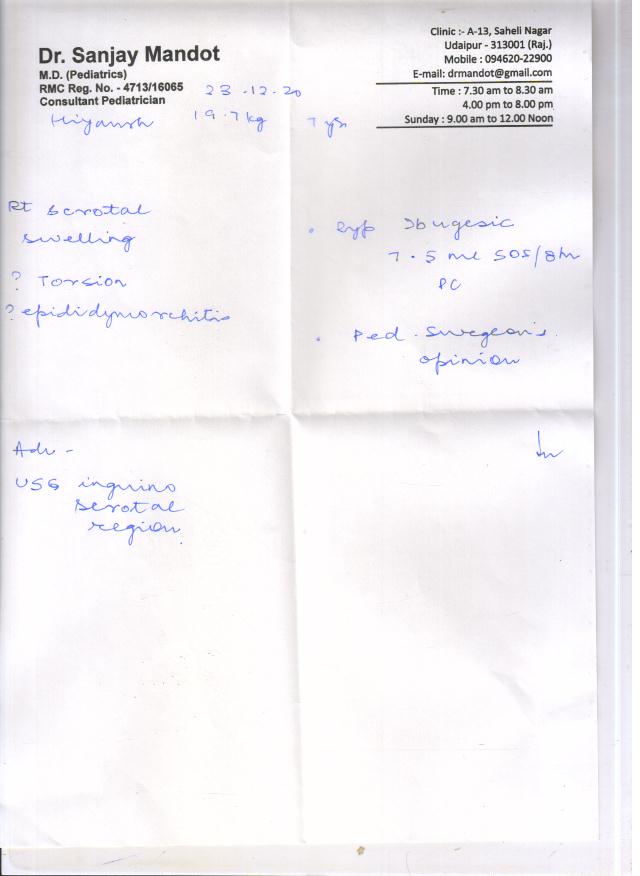 Dr. Sanjay Mandot
M.D. (Pediatrics)
RMC Reg. No. - 4713/16065
Consultant Pediatrician
Clinic :- A-13, Saheli Nagar
Udaipur - 313001 (Raj.)
Mobile : 094620-22900
E-mail: drmandot@gmail.com
Time : 7.30 am to 8.30 am
4.00 pm to 8.00 pm
Sunday : 9.00 am to 12.00 Noon
23-12-20
Hiyansh 19.7kg 7 yrs
Rt scrotal
swelling
? Torsion
? epididymorchitis
Adv -
USG inguino
scrotal
region
. Syp Ibugesic
7.5 ml SOS/8hr
PC
. Ped. Surgeon's
opinion